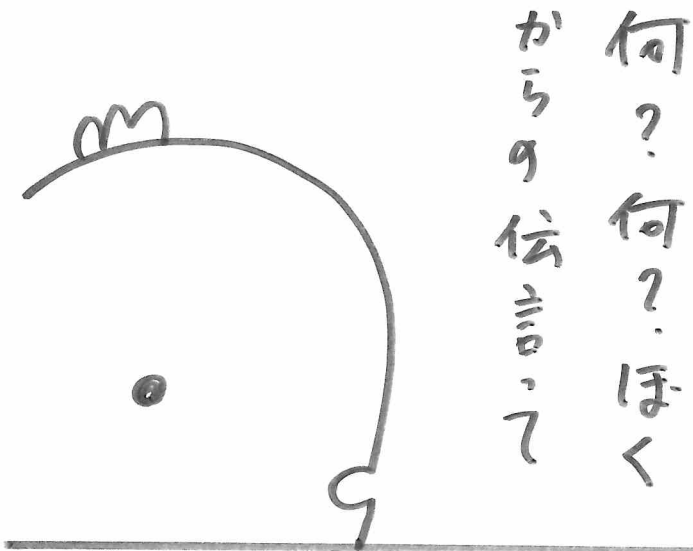 何?何?ぼく
からの伝言って